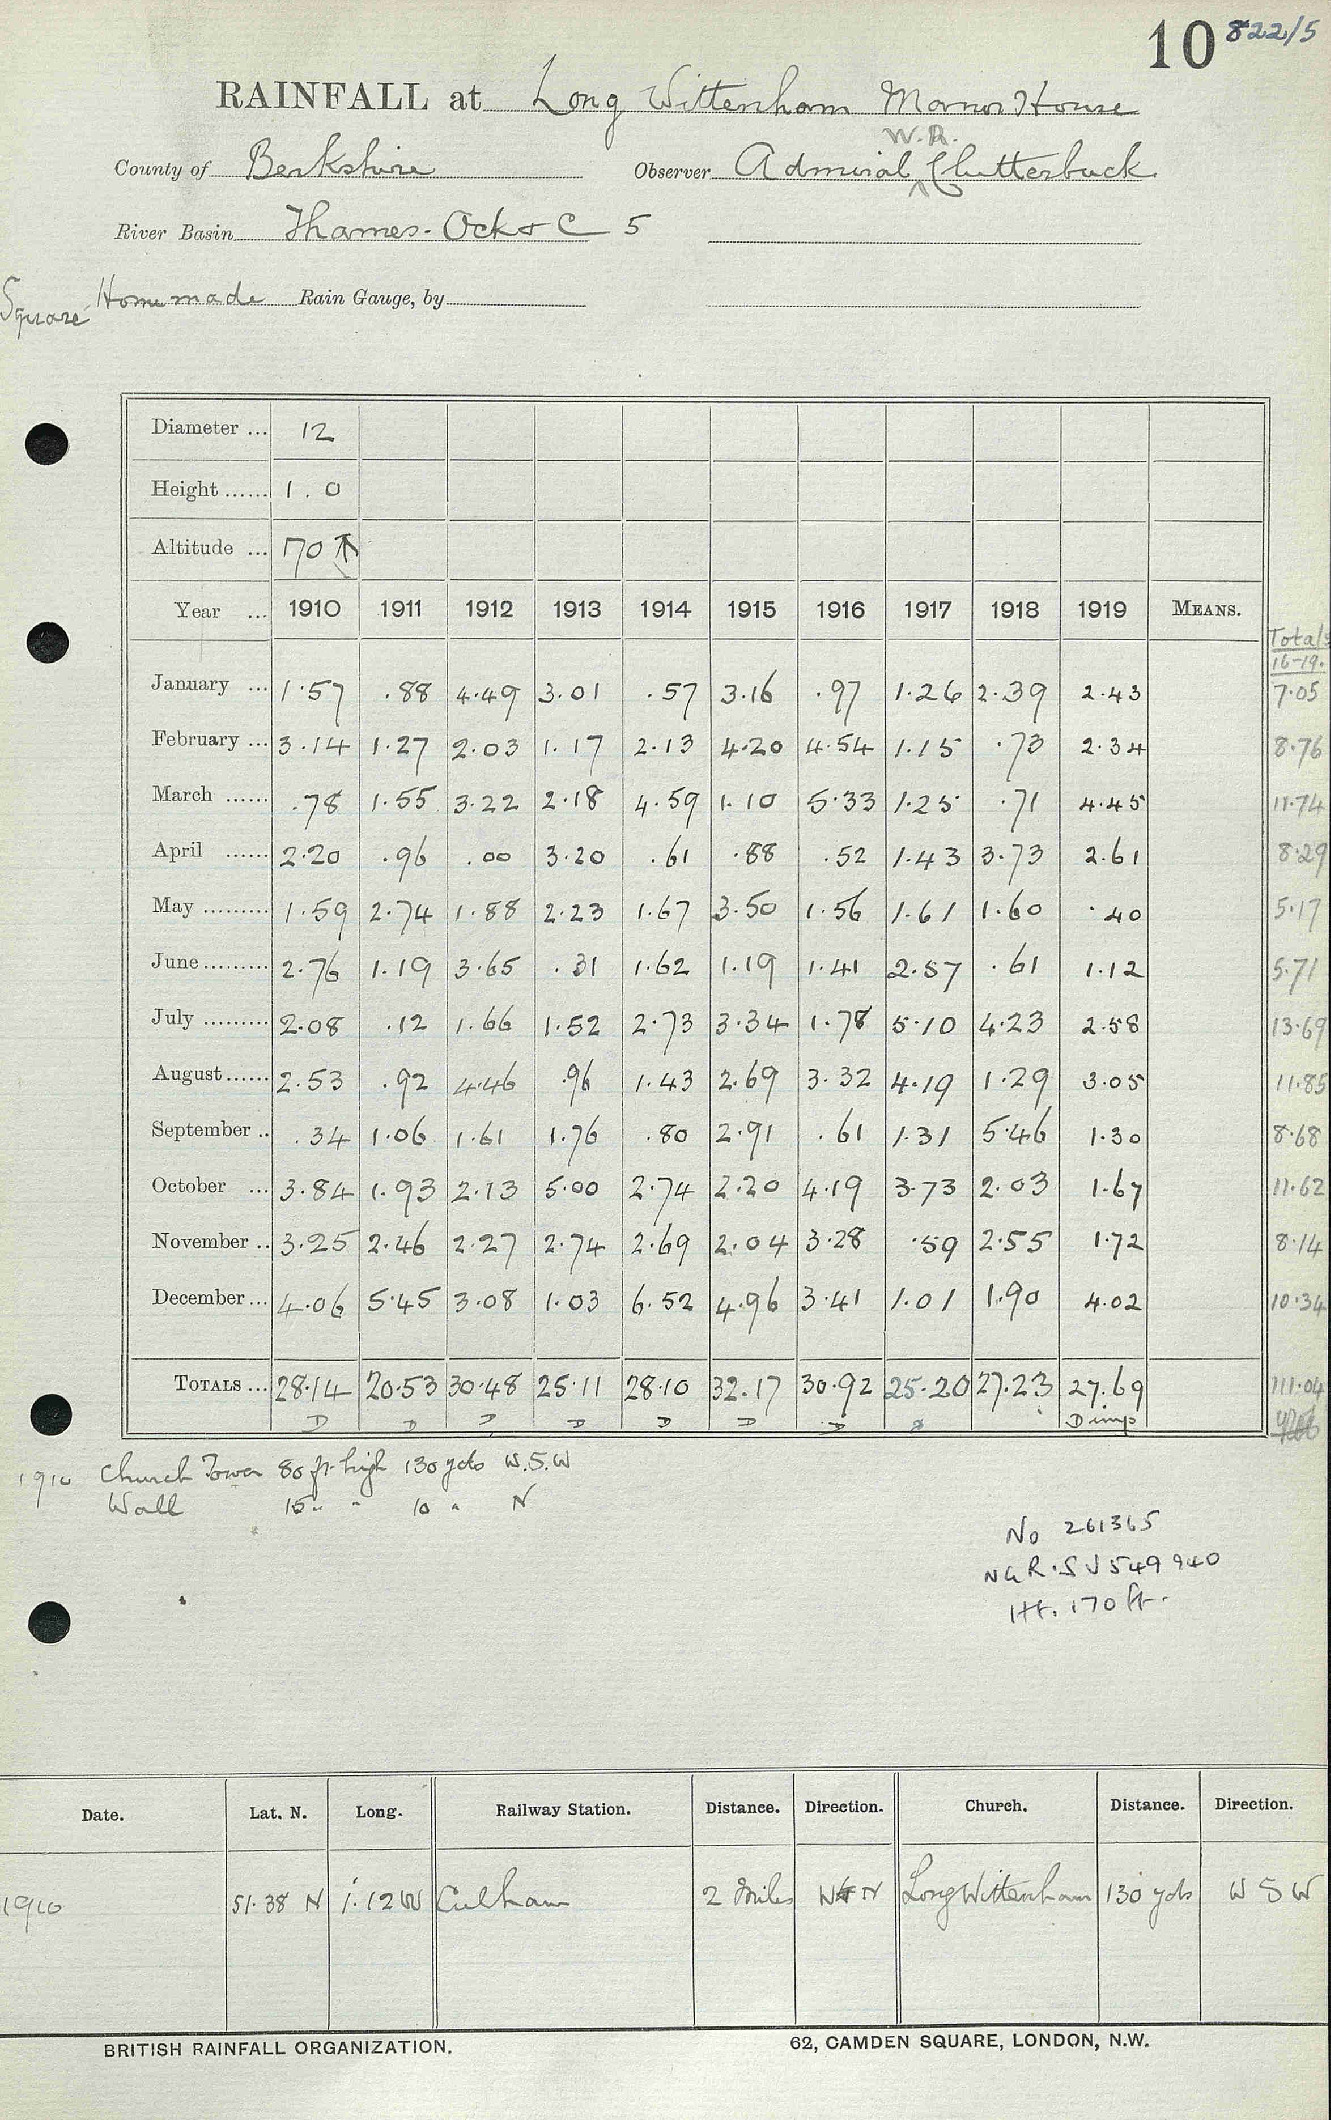 10 822/5
RAINFALL at Long Wittenham Manor House
W.R.
County of Berkshire Observer Admiral ^ Clutterbuck
River Basin Thames - Ock & C 5
Square Homemade Rain Gauge, by
Diameter ... 12
Height ...... 1.0
Altitude ... 170 ↑
Year ... 1910 1911 1912 1913 1914 1915 1916 1917 1918 1919 MEANS. Totals 16-19.
January ... 1.57 .88 4.49 3.01 .57 3.16 .97 1.26 2.39 2.43 7.05
February ... 3.14 1.27 2.03 1.17 2.13 4.20 4.54 1.15 .73 2.34 8.76
March ...... .78 1.55 3.22 2.18 4.59 1.10 5.33 1.25 .71 4.45 11.74
April ...... 2.20 .96 .00 3.20 .61 .88 .52 1.43 3.73 2.61 8.29
May ......... 1.59 2.74 1.88 2.23 1.67 3.50 1.56 1.61 1.60 .40 5.17
June ......... 2.76 1.19 3.65 .31 1.62 1.19 1.41 2.57 .61 1.12 5.71
July ......... 2.08 .12 1.66 1.52 2.73 3.34 1.78 5.10 4.23 2.58 13.69
August ...... 2.53 .92 4.46 .96 1.43 2.69 3.32 4.19 1.29 3.05 11.85
September .. .34 1.06 1.61 1.76 .80 2.91 .61 1.31 5.46 1.30 8.68
October ... 3.84 1.93 2.13 5.00 2.74 2.20 4.19 3.73 2.03 1.67 11.62
November .. 3.25 2.46 2.27 2.74 2.69 2.04 3.28 .59 2.55 1.72 8.14
December ... 4.06 5.45 3.08 1.03 6.52 4.96 3.41 1.01 1.90 4.02 10.34
TOTALS ... 28.14 20.53 30.48 25.11 28.10 32.17 30.92 25.20 27.23 27.69 111.04
D D D D D D D D imp
1910 Church Tower 80 ft. high 130 yds W.S.W
Wall 15 " " 10 " N
No 261365
NGR. SU 549 940
Ht. 170 ft.
Date. Lat. N. Long. Railway Station. Distance. Direction. Church. Distance. Direction.
1910 51.38 N 1.12 W Culham 2 Miles N Long Wittenham 130 yds W S W
BRITISH RAINFALL ORGANIZATION. 62, CAMDEN SQUARE, LONDON, N.W.